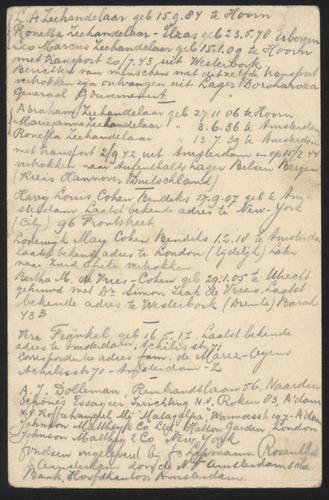 L. A. Zeehandelaar geb 15.9.84 te Hoorn
Roneltta Zeehandelaar - Elzas geb 23.5.78
Leo Marcus Zeehandelaar geb 15.1.09 te Hoorn
met transport 20/7.43 uit Westerbork
Berichten van menschen met hetzelfde transport
vertrokken zijn ontvangen uit Lager Dorohucza
Generaal Gouvernement
Abraham Zeehandelaar geb 27.11.06 te Hoorn
Marianne Zeehandelaar " 3.6.36 te Amsterdam
Ronetta Zeehandelaar " 13.7.39 te Amsterdam
met transport 2/9.42 uit Amsterdam en op 15/2.44
vertrokken naar Aufenthalts Lager Belsen Bergen
(Kreis Hannover Duitschland)
Harry Louis Cohen Bendiks 27.9.07 geb te Am-
sterdam. Laatst bekende adres te New-York
(City) 96 Frontstreet
Lodewijk May Cohen Bendiks 1.2.18 te Amsterdam
Laatst bekende adres te London (tijdelijk) later
naar Zuid Afrika vertrokken
Bertha M. de Vries-Cohen geb 29.1.05 te Utrecht
gehuwd met Dr Simon Leo de Vries. Laatst
bekende adres te Westerbork (Drente) Barak
43B
Vera Fränkel geb 16.5.17. Laatst bekende
adres te Amsterdam, Achillesstr 71
Correspondentie adres fam. de Marez-Oyens
Achillesstr 70 - Amsterdam - Z
A. J. Dolleman, Rembrandtlaan 56, Naarden
Schönes Essayeer Inrichting N.V. Rokin 03, A'dam
N.V. Koffiehandel Mij Matagalpa, Warmoesstr 197 - A'dam
Johnson Matthey & Co Ltd Hatton Garden, London
Johnson Matthey & Co New York
fondsen ingeleverd bij Lippmann Rosenthal
Amsterdam door de N.V. Amsterdamsche
Bank, Hoofdkantoor Amsterdam.